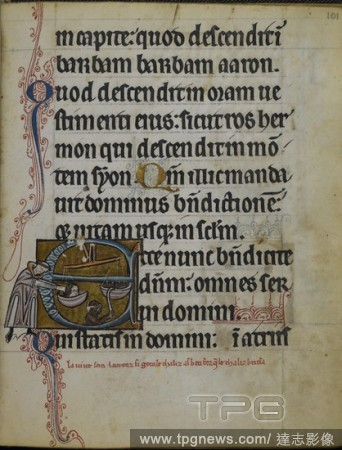 101
in capite: quod descendit ī
barbam barbam aaron.
Quod descendit in oram ue
stimenti eius: sicut ros her
mon qui descendit in mō
tem syon. Qm̄ illic manda
uit dominus bn̄dictionē:
& uitam usq; in sclm̄.
Ecce nunc bn̄dicite
dn̄m: omnes ser
ui domini.
Qui statis in domo dn̄i: ī atriis
TPG
www.tpgnews.com / 達志影像